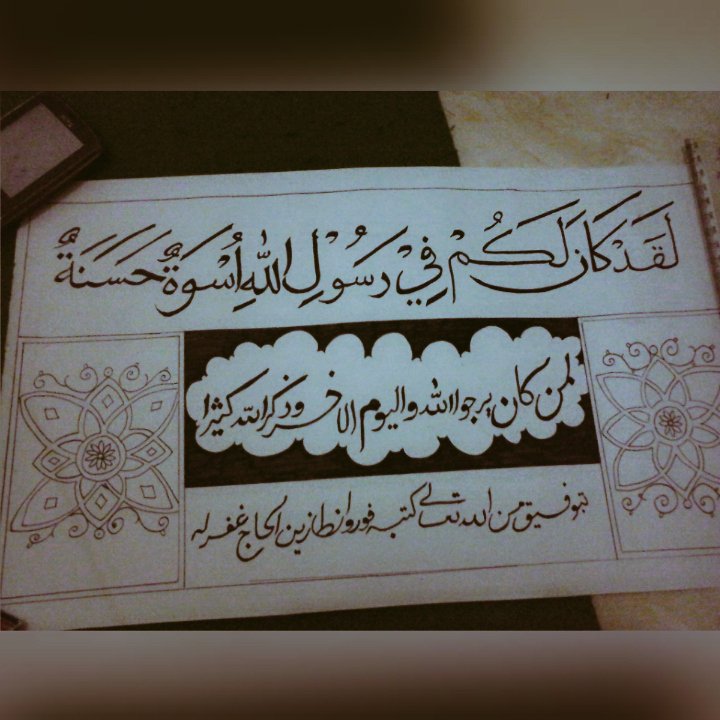 لَقَدْ كَانَ لَكُمْ فِيْ رَسُوْلِ اللّٰهِ اُسْوَةٌ حَسَنَةٌ
لمن كان يرجوا الله واليوم الاخر وذكر الله كثيرا
بتوفيق من الله تعالى كتبه زين الحاج غفر له